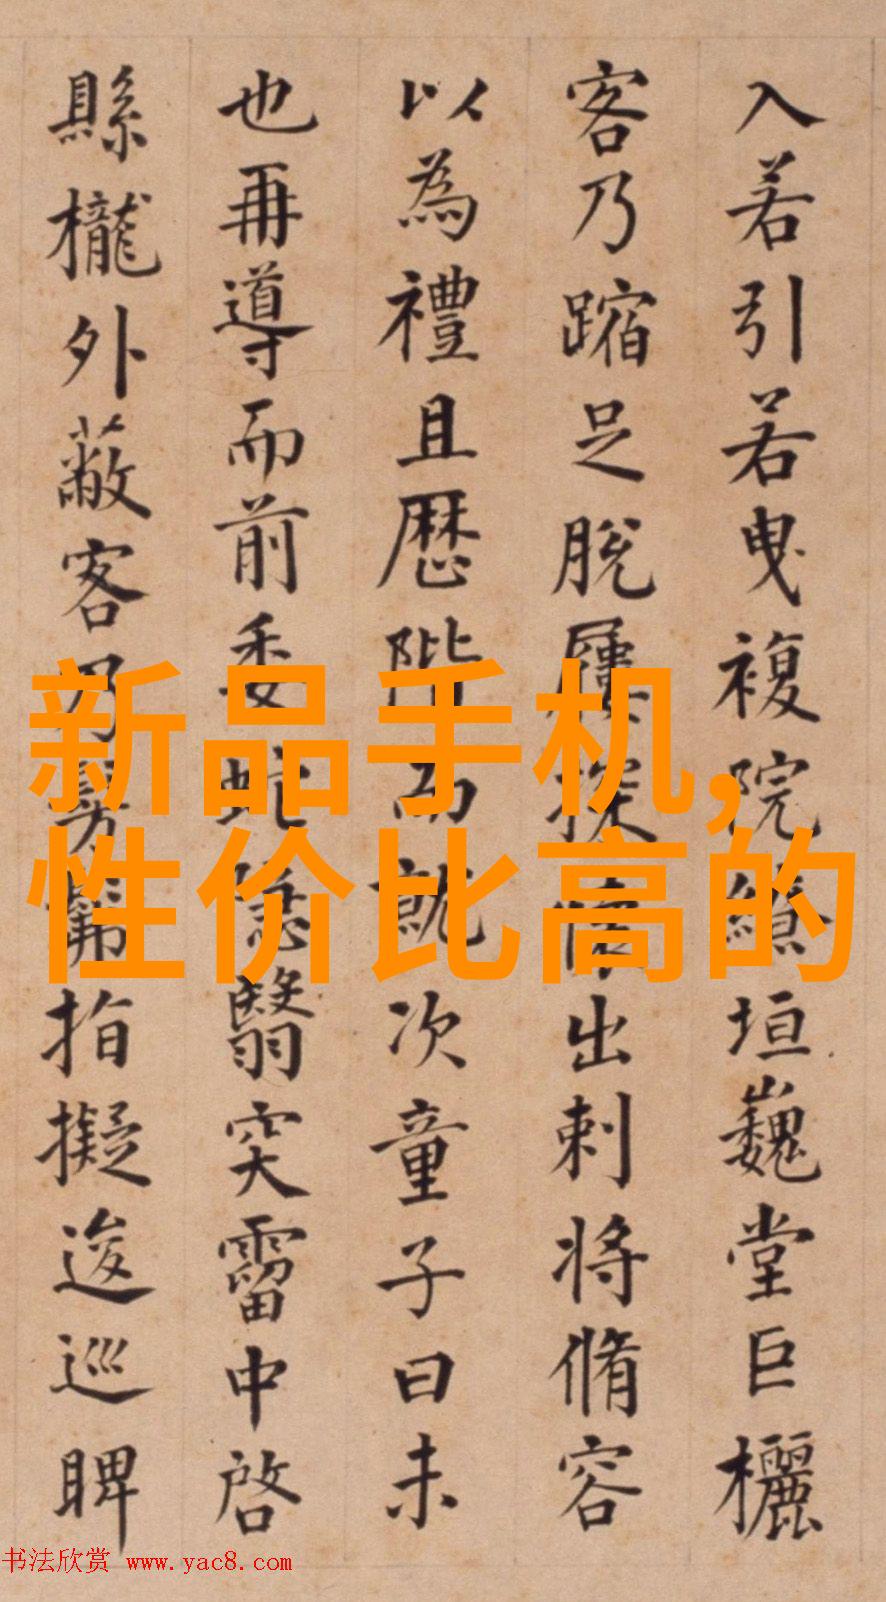 入若引若曳複院繚垣巍堂巨欐
客乃蹜足脫屨探懷出刺將脩容
以為禮且歷階而就次童子曰未
也再導而前委蛇隱翳突霤中啓
縣櫳外蔽客乃髣髴指擬逡巡睥
新品手机,
性价比高的
书法欣赏 www.yac8.com